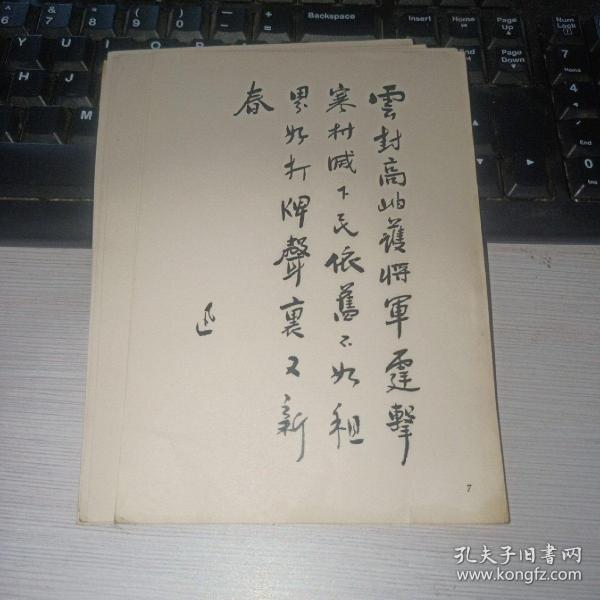 雲封高岫護將軍霆擊
寒村滅下民依舊不如租
界好打牌聲裏又新
春
迅
7
Backspace
Insert
Home
Page Up
Num Lock
End
Page Down
孔夫子旧書网
www.kongfz.com